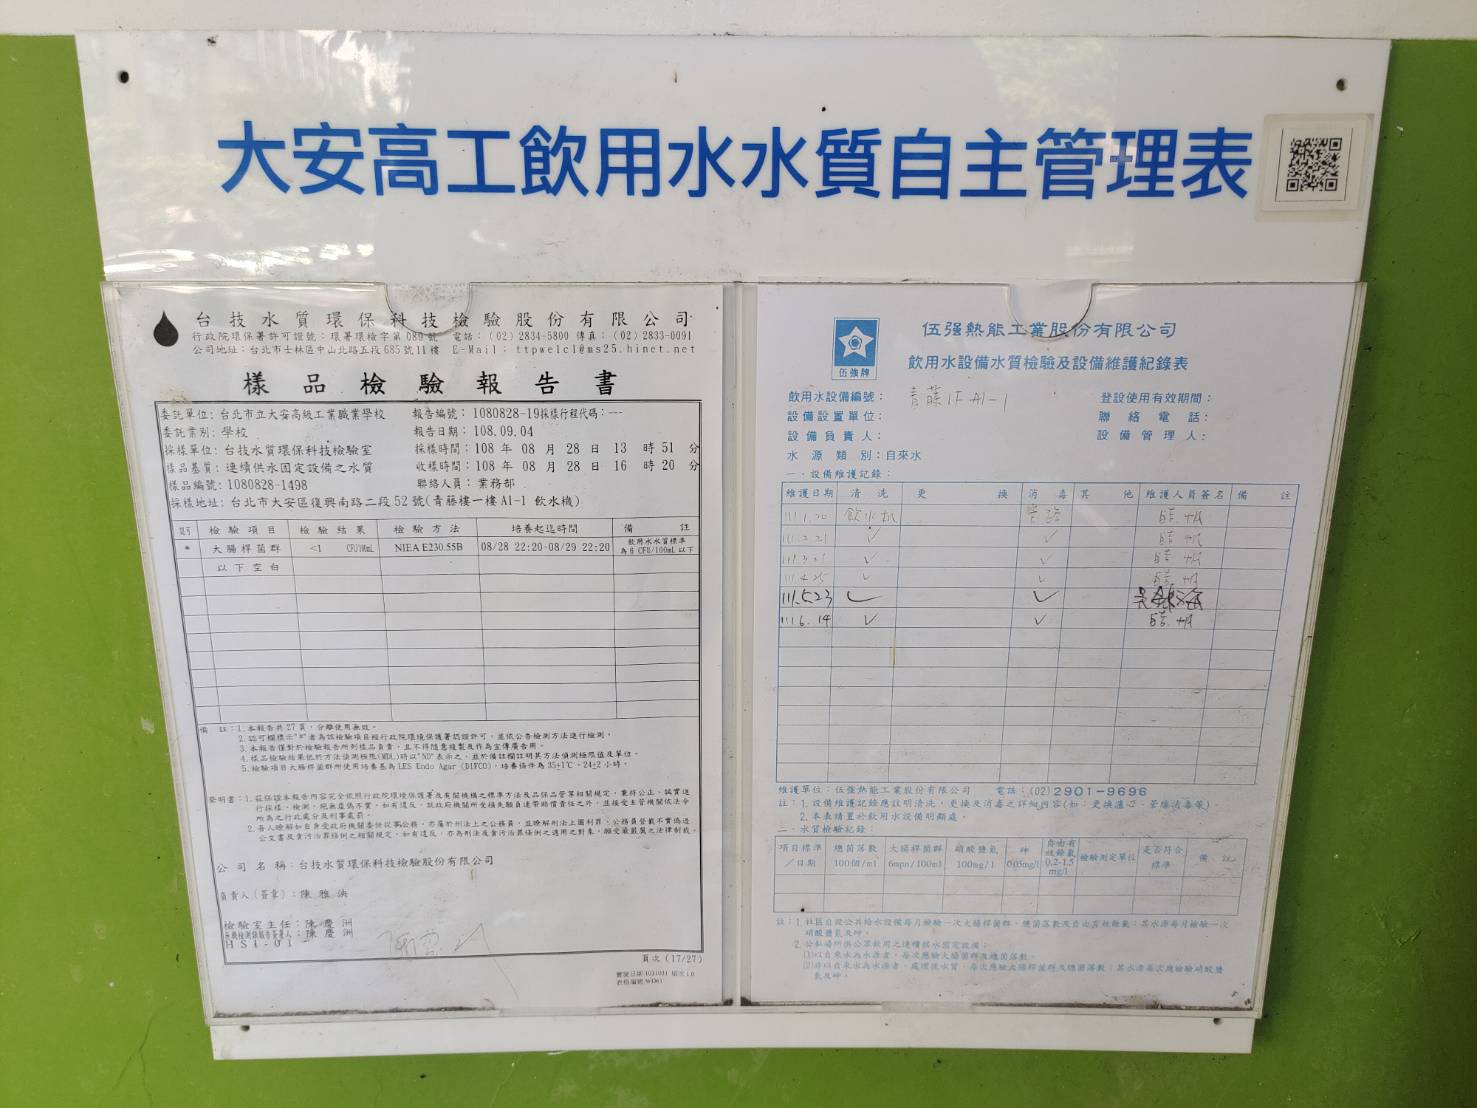 大安高工飲用水水質自主管理表
台技水質環保科技檢驗股份有限公司
行政院環保署許可證號：環署環檢字第 089 號 電話：(02) 2834-5800 傳真：(02) 2833-0091
公司地址：台北市士林區中山北路五段 685 號 11 樓 E-Mail: ttpwelcl@ms25.hinet.net
樣品檢驗報告書
委託單位：台北市立大安高級工業職業學校 報告編號：1080828-19採樣行程代碼：---
委託業別：學校 報告日期：108.09.04
採樣單位：台技水質環保科技檢驗室 採樣時間：108 年 08 月 28 日 13 時 51 分
樣品基質：連續供水固定設備之水質 收樣時間：108 年 08 月 28 日 16 時 20 分
樣品編號：1080828-1498 聯絡人員：業務部
採樣地址：台北市大安區復興南路二段 52 號(青藤樓一樓 A1-1 飲水機)
檢驗項目 檢驗結果 檢驗方法 培養起迄時間 備註
* 大腸桿菌群 <1 CFU/100mL NIEA E230.55B 08/28 22:20-08/29 22:20 飲用水水質標準
為 6 CFU/100mL 以下
以下空白
備 註：1.本報告共27頁，分離使用無效。
2.認可欄標示"*"者為該檢驗項目經行政院環境保護署認證許可，並依公告檢測方法進行檢測。
3.本報告僅對於檢驗報告所列樣品負責，且不得隨意複製及作為宣傳廣告用。
4.樣品檢驗結果低於方法偵測極限(MDL)時以"ND"表示之，並於備註欄註明其方法偵測極限值及單位。
5.檢驗項目大腸桿菌群所使用培養基為 LES Endo Agar (DIFCO)，培養條件為 35±1℃、24±2 小時。
聲明書：1.茲保證本報告內容完全依照行政院環境保護署及有關機構之標準方法及品保品管等相關規定，秉持公正、誠實進
行採樣、檢測，絕無虛偽不實，如有違反，就政府機關所受損失願負連帶賠償責任之外，並接受主管機關依法令
所為之行政處分及刑事處罰。
2.吾人瞭解如自身受政府機關委任從事公務，亦屬於刑法上之公務員，並瞭解刑法上圖利罪、公務員登載不實偽造
公文書及貪污治罪條例之相關規定，如有違反，亦為刑法及貪污治罪條例之適用之對象，願受最嚴厲之法律制裁。
公司名稱：台技水質環保科技檢驗股份有限公司
負責人(簽章)：陳雅泱
檢驗室主任：陳慶洲
無機檢測類報告簽署人：陳慶洲
HSI-01
頁次 (17/27)
伍強牌
伍强熱能工業股份有限公司
飲用水設備水質檢驗及設備維護紀錄表
飲用水設備編號：青藤1F A1-1 登設使用有效期間：
設備設置單位： 聯絡電話：
設備負責人： 設備管理人：
水源類別：自來水
一、設備維護記錄：
維護日期 清洗 更換 消毒 其他 維護人員簽名 備註
111.1.20 飲水机 管路
111.2.21 ✓ ✓
111.3.21 ✓ ✓
111.4.25 ✓ ✓
111.5.23 ✓ ✓
111.6.14 ✓ ✓
維護單位：伍強熱能工業股份有限公司 電話：(02)2901-9696
註：1.設備維護記錄應註明清洗、更換及消毒之詳細內容(如：更換濾心、管線消毒等)。
2.本表請置於飲用水設備明顯處。
二、水質檢驗記錄：
項目標準／日期 總菌落數 100個/ml 大腸桿菌群 6mpn/100ml 硝酸鹽氮 100mg/l 砷 0.05mg/l 自由有效餘氯 0.2-1.5 mg/l 檢驗測定單位 是否符合標準 備註
註：1.社區自設公共給水設備每月檢驗一次大腸桿菌群、總菌落數及自由有效餘氯；其水源每月檢驗一次
硝酸鹽氮及砷。
2.公私場所供公眾飲用之連續供水固定設備：
(1)以自來水為水源者，每次應驗大腸桿菌群及總菌落數。
(2)非以自來水為水源者，處理後水質，每次應驗大腸桿菌群及總菌落數；其水源每次應檢驗硝酸鹽
氮及砷。